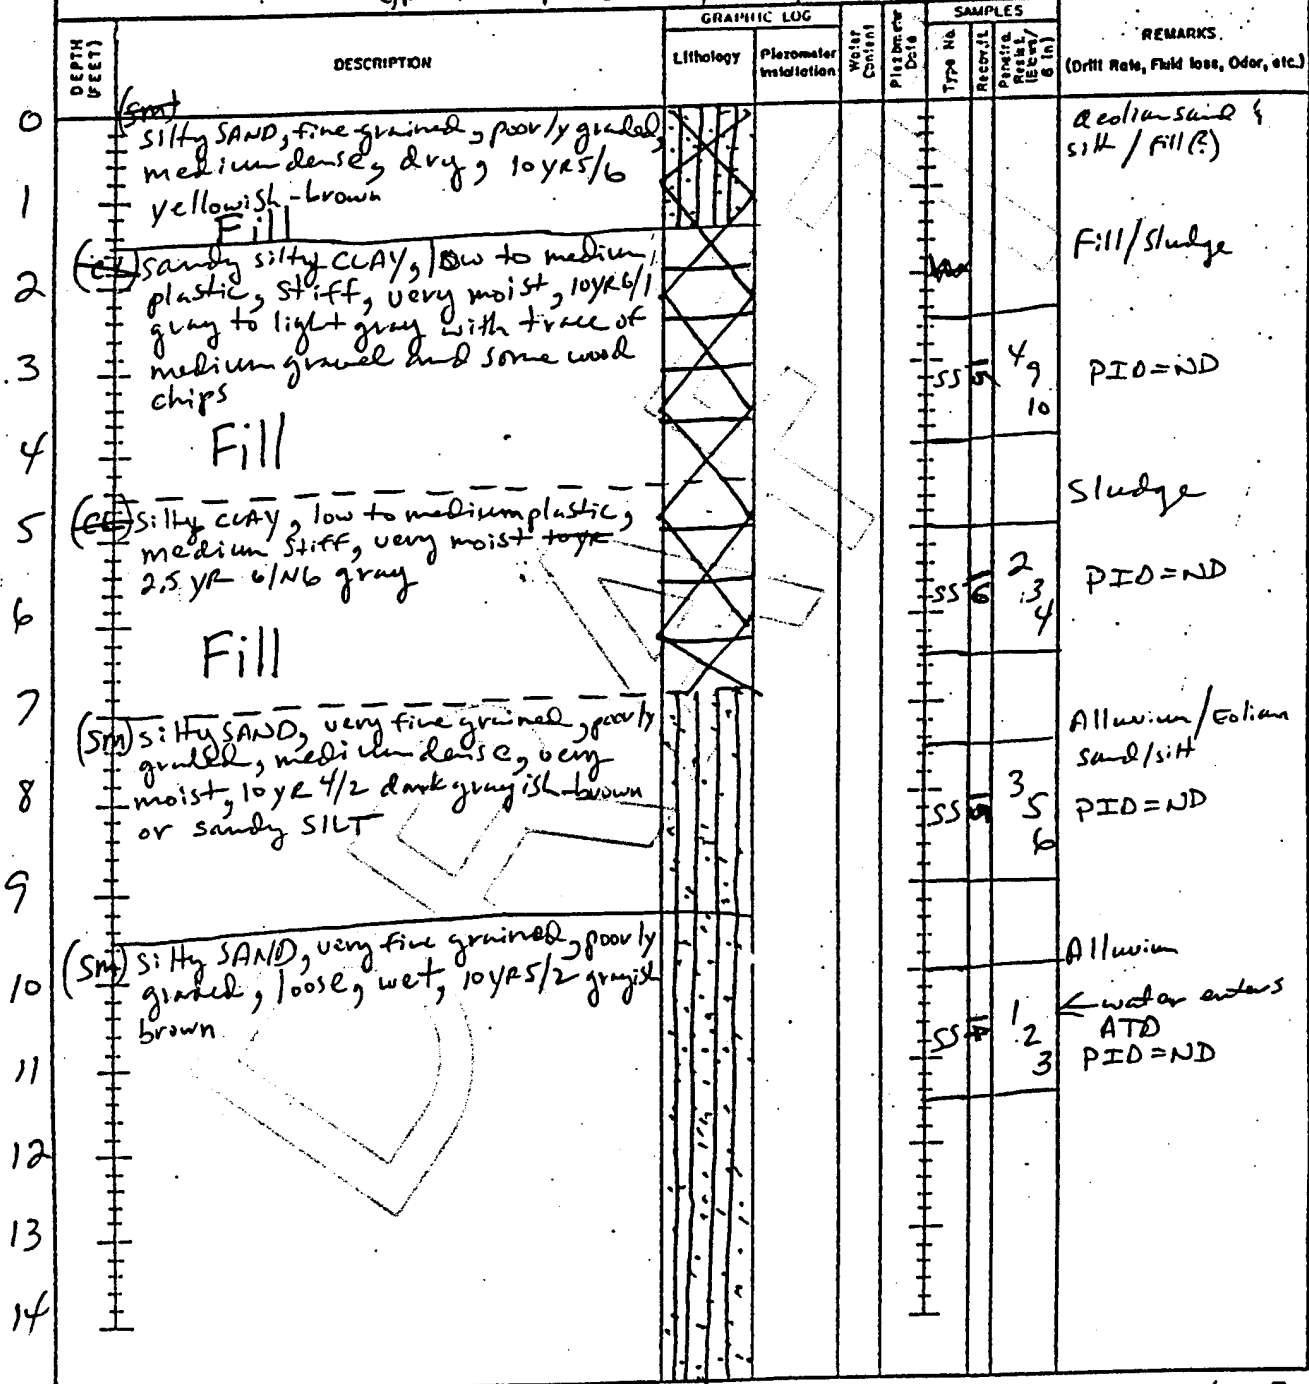 GRAPHIC LOG
SAMPLES
DEPTH (FEET)
DESCRIPTION
Lithology
Piezometer Installation
Water Content
Piezometer Data
Type No
REMARKS
(Drill Rate, Fluid loss, Odor, etc.)
0
(sm)
silty SAND, fine grained, poorly graded,
medium dense, dry, 10YR5/6
yellowish-brown
Fill
aeolian sand &
silt / fill (?)
1
(CL) sandy silty CLAY, low to medium
plastic, stiff, very moist, 10YR6/1
gray to light gray with trace of
medium gravel and some wood
chips
Fill
Fill/Sludge
2
3
SS
4
9
10
PID=ND
4
Sludge
5
(CL) silty CLAY, low to medium plastic,
medium stiff, very moist 10YR
2.5 YR 6/N6 gray
Fill
SS
2
3
4
PID=ND
6
7
(SM) silty SAND, very fine grained, poorly
graded, medium dense, very
moist, 10YR 4/2 dark grayish-brown
or sandy SILT
Alluvium/Eolian
sand/silt
8
SS
3
5
6
PID=ND
9
(SM) silty SAND, very fine grained, poorly
graded, loose, wet, 10YR5/2 grayish
brown
Alluvium
10
SS
1
2
3
← water enters
ATD
PID=ND
11
12
13
14
DRAFT